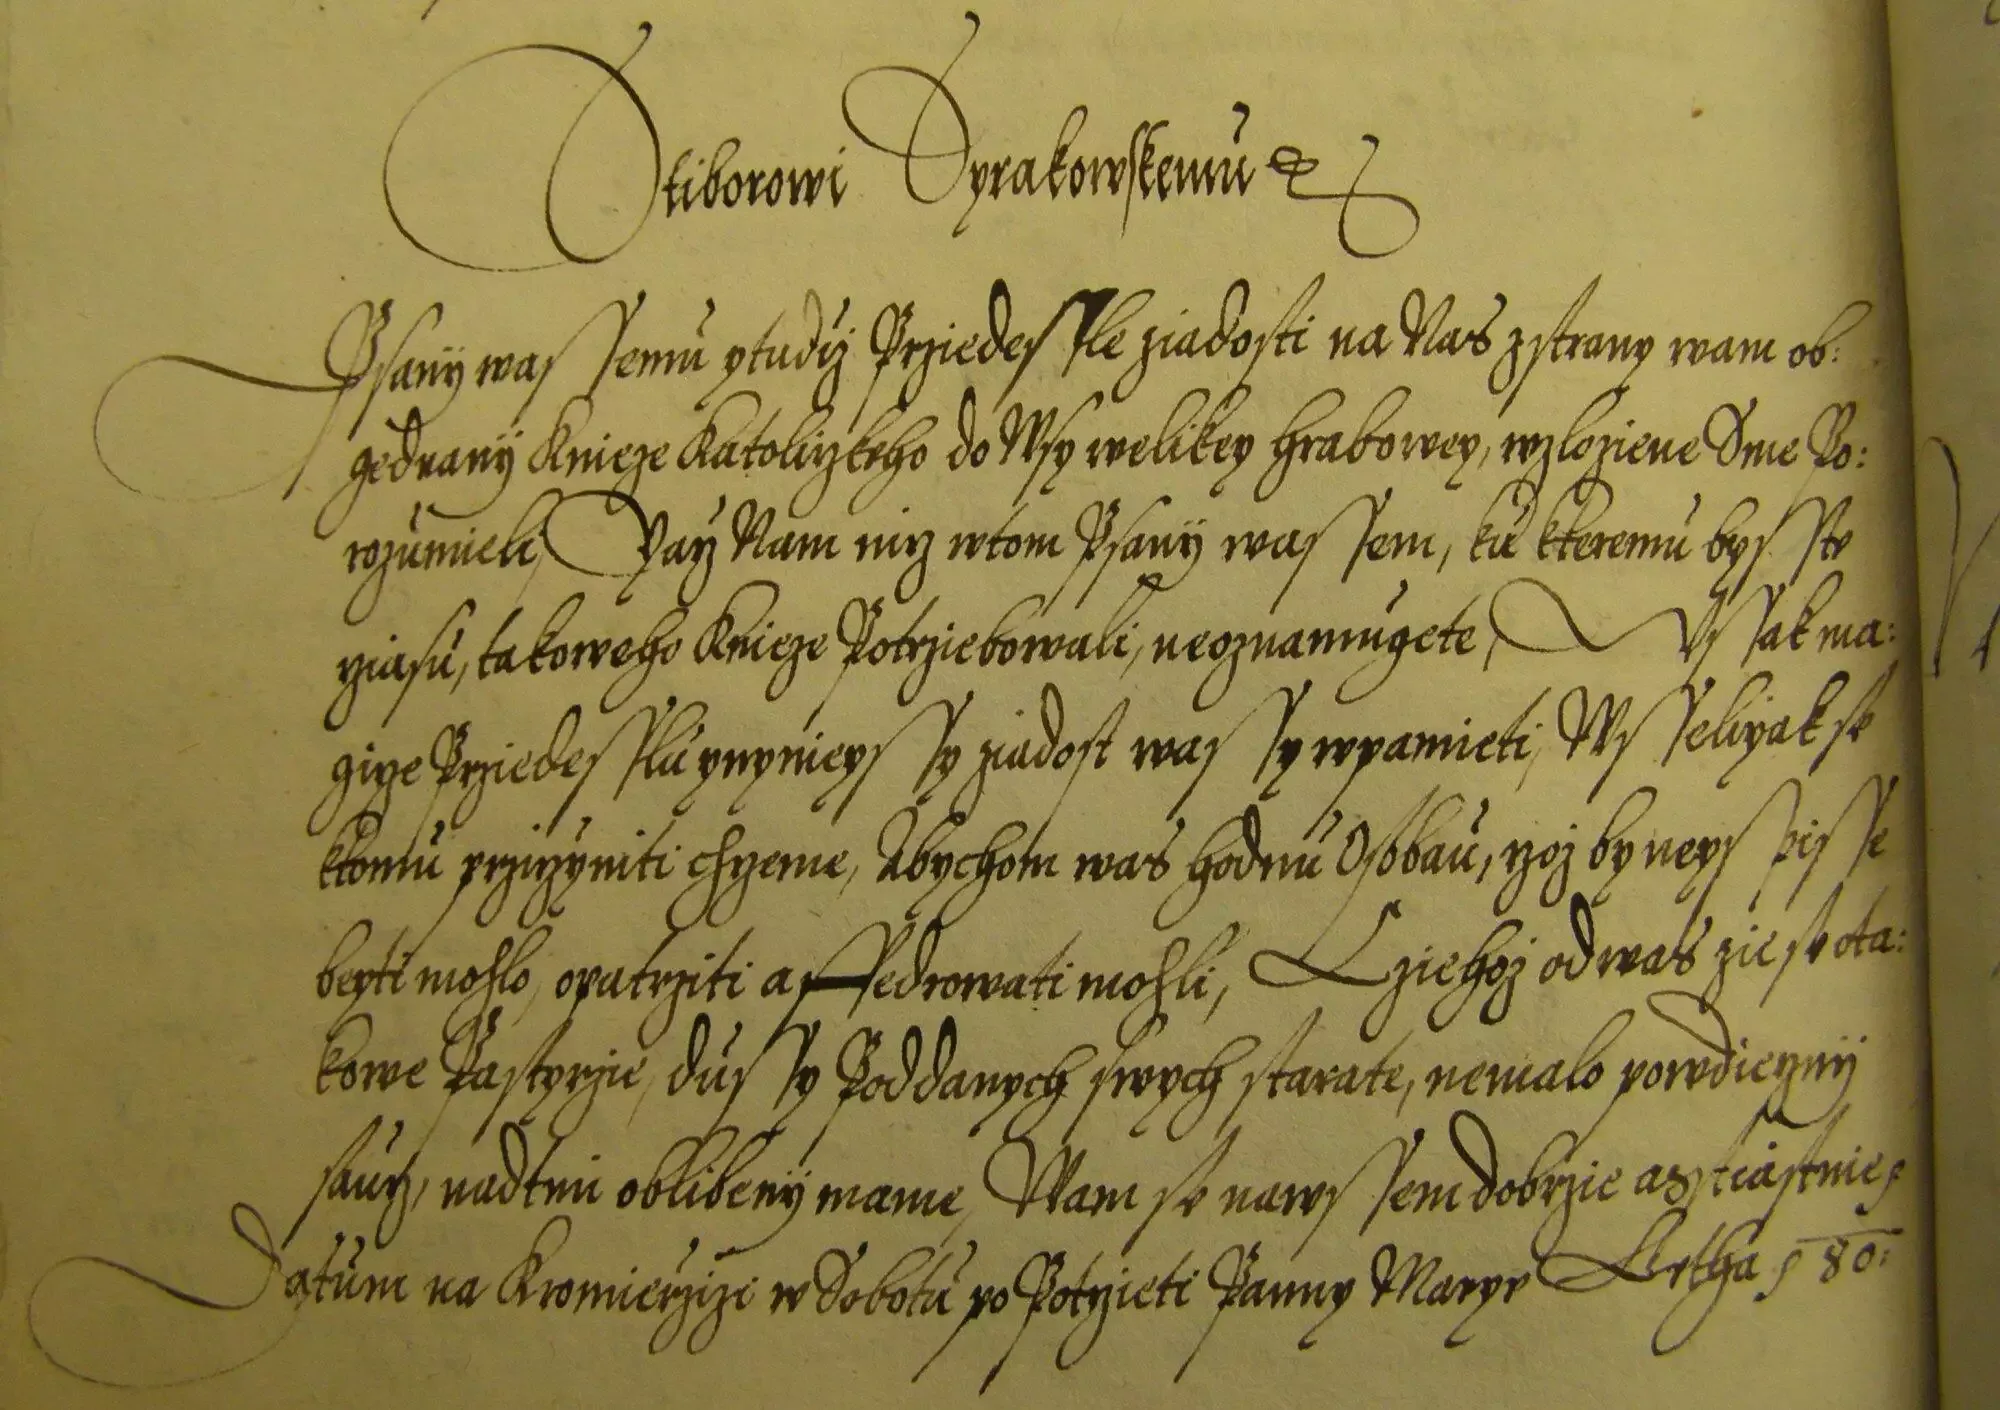 Stiborowi Syrakowskemu &c
Psanij wassemu ytudiz Przedessle ziadosti na Nas zstrany wam ob:
gednanij Knieze Katolizkeho do Wsy welikey Hrabowey, wzloziene Sme Po:
rozumieli, Yayz Nam niz wtom Psanij wassem, ku kteremu bysste
cziasu, takoweho Knieze Potrziebowali, neoznamugete, Wssak ma:
gicze Przedesslu ynynieyssy ziadost wassy wpamieti, Wsselijak se
ktomu przicyniti chczeme, Abychom was hodnu Osobau, czoz by neyspisse
beyti mohlo, opatrziti a ssedrowati mohli, Cziehoz odwas zie se ota:
kowe Pastyrzie, dussy Poddanych swych starate, nemalo powdiecznij
sauc, nadtmi oblibenij mame, Wam se nawssem dobrzie asstiastnie
Datum na Kromierzizi w Sobotu po Potzieti Panny Marye Letha 80: